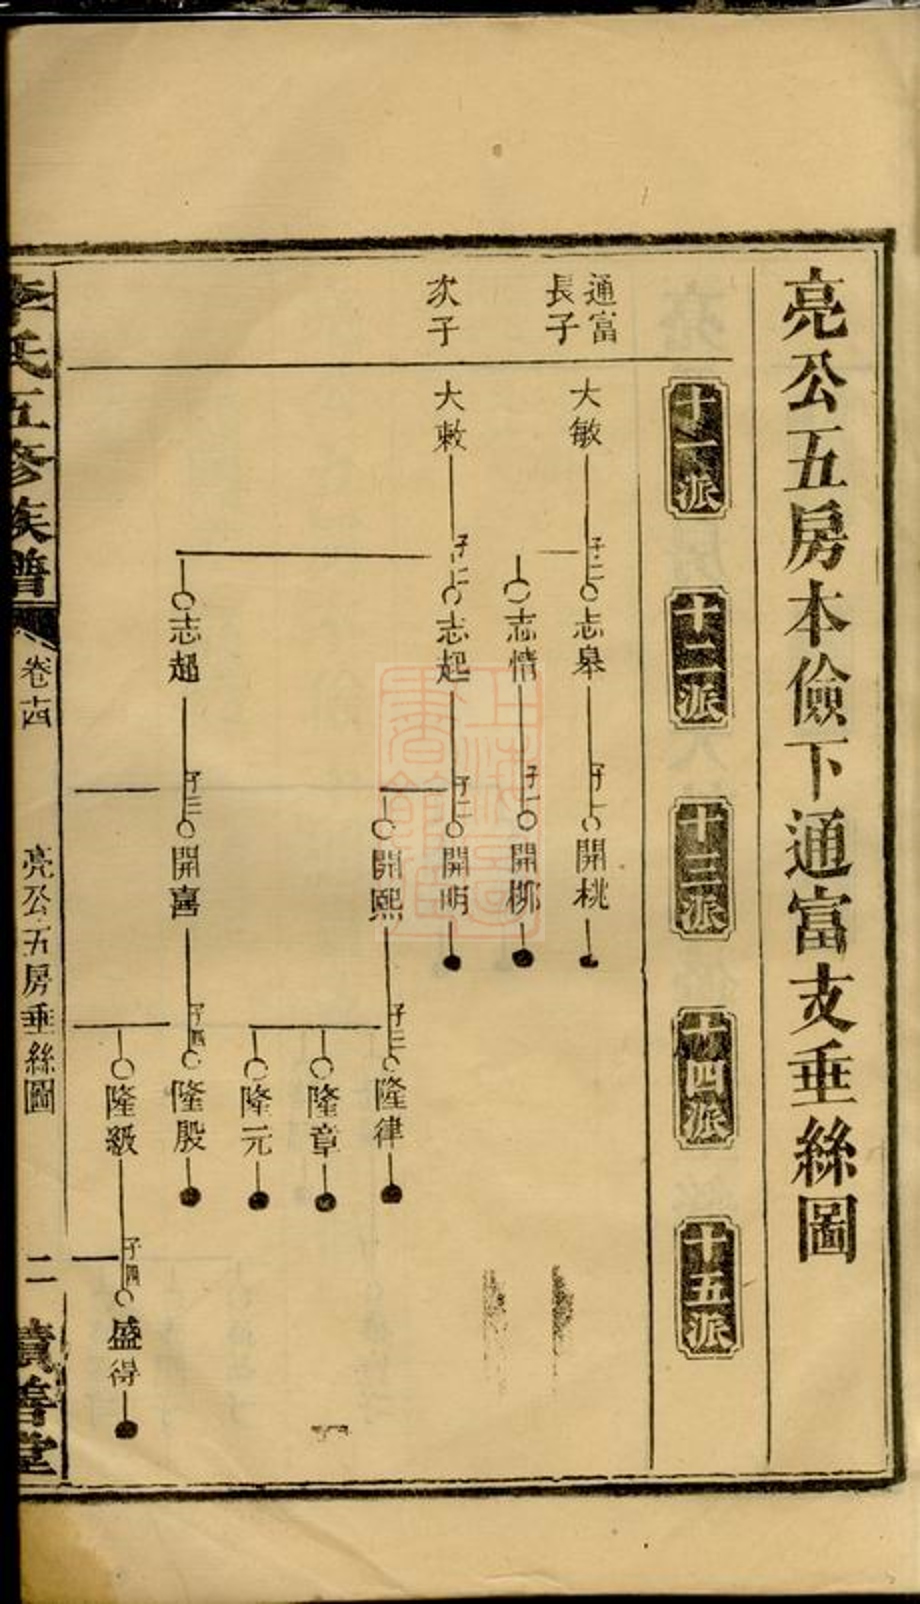 亮公五房本儉下通富支垂絲圖
十一派
十二派
十三派
十四派
十五派
通富
長子
大敏
子二
志皋
子一
開桃
志情
子一
開柳
次子
大敕
子二
志起
子二
開明
開熙
子三
隆律
隆章
隆元
志超
子三
開喜
子四
隆殷
隆級
子四
盛得
李氏五修族譜
卷十四
亮公五房垂絲圖
二
上海圖書館藏